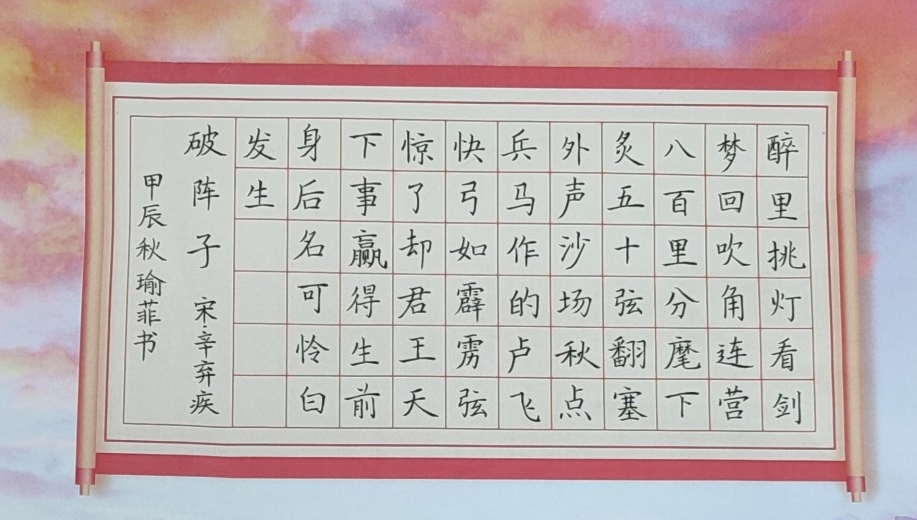 醉里挑灯看剑
梦回吹角连营
八百里分麾下
炙五十弦翻塞
外声沙场秋点
兵马作的卢飞
快弓如霹雳弦
惊了却君王天
下事赢得生前
身后名可怜白
发生
破阵子 宋·辛弃疾
甲辰秋瑜菲书